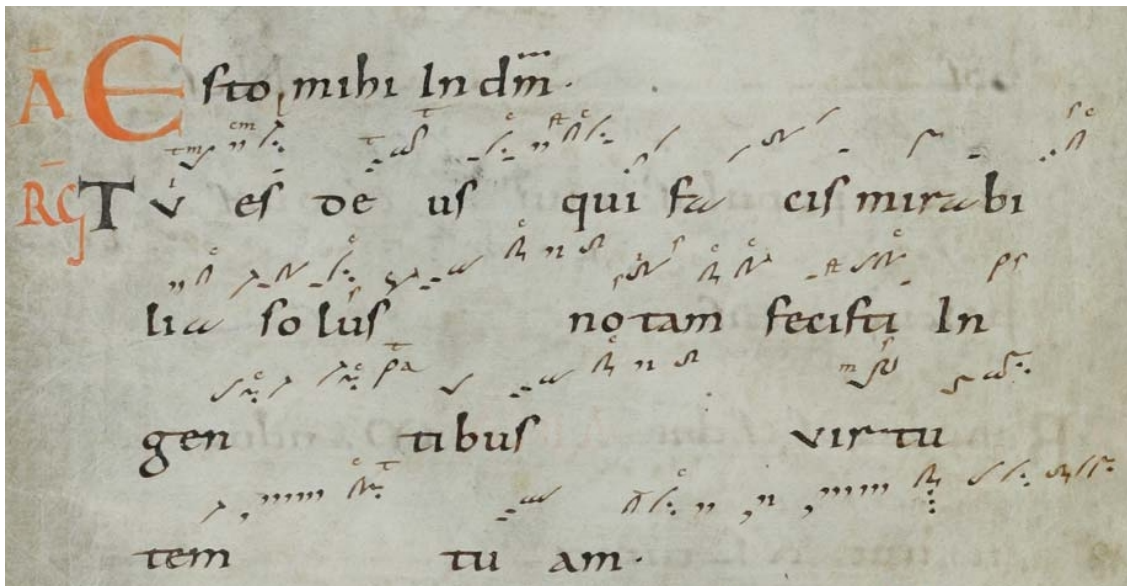 Ā Esto mihi In dm̄.
RG Tu es de us qui fa cis mirabi
lia so lus notam fecisti In
gen tibus virtu
tem tu am.